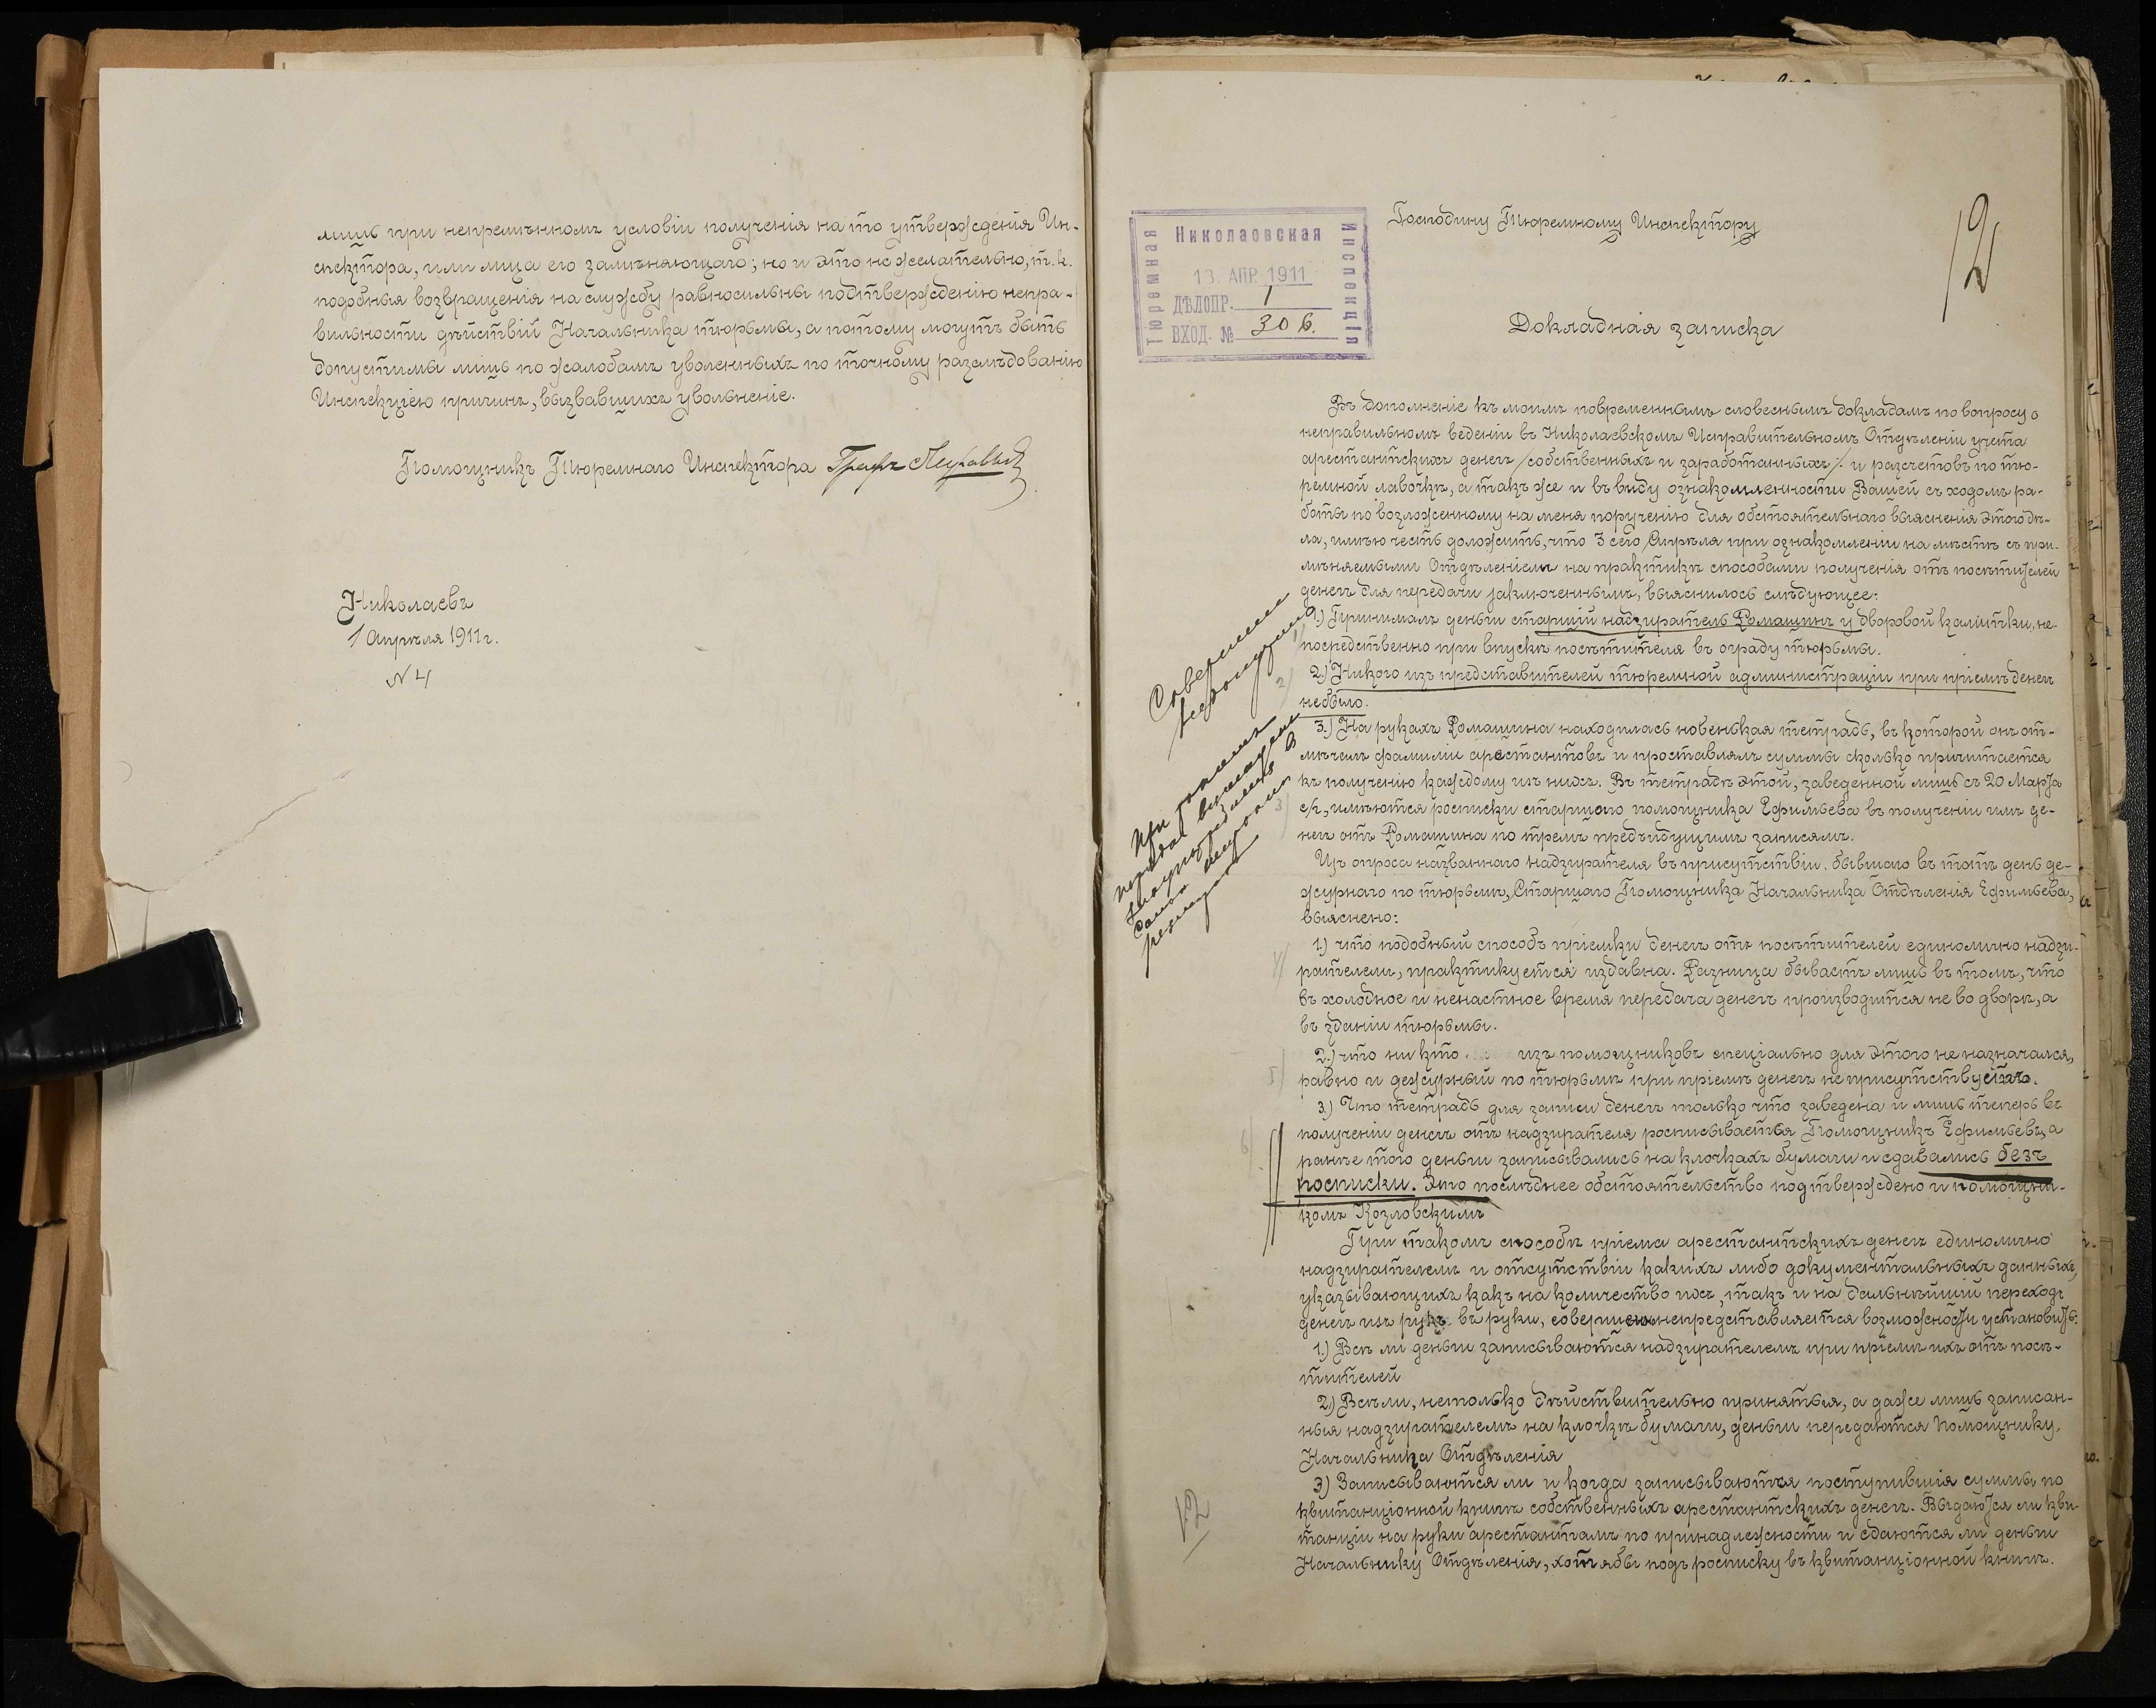 лишь при непремѣнномъ условіи полученія на то утвержденія Ин-
спектора, или лица его замѣняющаго; но и это не желательно, т.к.
подобныя возвращенія на службу равносильны подтвержденію непра-
вильности дѣйствій Начальника тюрьмы, а потому могутъ быть
допустимы лишь по жалобамъ уволенныхъ по точному разслѣдованію
Инспекціею причинъ, вызвавшихъ увольненіе.
Помощникъ Тюремнаго Инспектора Графъ
Николаевъ
1 Апрѣля 1911 г.
№ 4
12
Николаевская
Тюремная
Инспекція
13. АПР. 1911
ДѢЛОПР. 1
ВХОД. № 306.
Господину Тюремному Инспектору
Докладная записка
Въ дополненіе къ моимъ повременнымъ словеснымъ докладамъ по вопросу о
неправильномъ веденіи въ Николаевскомъ Исправительномъ Отдѣленіи учета
арестантскихъ денегъ /собственныхъ и заработанныхъ/ и разсчетовъ по тю-
ремной лавочкѣ, а такъ же и въ виду ознакомленности Вашей съ ходомъ ра-
боты по возложенному на меня порученію для обстоятельнаго выясненія этого дѣ-
ла, имѣю честь доложить, что 3 сего Апрѣля при ознакомленіи на мѣстѣ съ при-
мѣняемыми Отдѣленіемъ на практикѣ способами полученія отъ посѣтителей
денегъ для передачи заключеннымъ, выяснилось слѣдующее:
Совершенно
недопустимо
1.) Принималъ деньги старшій надзиратель Ромашинъ у дворовой калитки, не-
посредственно при впускѣ посѣтителя въ ограду тюрьмы.
2.) Никого изъ представителей тюремной администраціи при пріемѣ денегъ
не было.
3.) На рукахъ Ромашина находилась новенькая тетрадь, въ которой онъ от-
мѣчалъ фамиліи арестантовъ и проставлялъ суммы сколько причитается
къ полученію каждому изъ нихъ. Въ тетради этой, заведенной лишь съ 20 Марта
с/г, имѣются росписки старшаго помощника Ефимьева въ полученіи имъ де-
негъ отъ Ромашина по тремъ предъидущимъ записямъ.
Изъ опроса названнаго надзирателя въ присутствіи, бывшаго въ тотъ день де-
журнаго по тюрьмѣ, Старшаго Помощника Начальника Отдѣленія Ефимьева,
выяснено:
1.) что подобный способъ пріемки денегъ отъ посѣтителей единолично надзи-
рателемъ, практикуется издавна. Разница бываетъ лишь въ томъ, что
въ холодное и ненастное время передача денегъ производится не во дворѣ, а
въ зданіи тюрьмы.
2.) что никто изъ помощниковъ спеціально для этого не назначался,
равно и дежурный по тюрьмѣ при пріемѣ денегъ не присутствуетъ.
3.) Что тетрадь для записи денегъ только что заведена и лишь теперь въ
полученіи денегъ отъ надзирателя росписывается Помощникъ Ефимьевъ, а
ранѣе того деньги записывались на клочкахъ бумаги и сдавались безъ
росписки. Это послѣднее обстоятельство подтверждено и помощни-
комъ Козловскимъ
При такомъ способѣ пріема арестантскихъ денегъ единолично
надзирателемъ и отсутствіи какихъ либо документальныхъ данныхъ,
указывающихъ какъ на количество ихъ, такъ и на дальнѣйшій переходъ
денегъ изъ рукъ въ руки, совершенно непредставляется возможности установить:
1.) Всѣ ли деньги записываются надзирателемъ при пріемѣ ихъ отъ посѣ-
тителей
2.) Всѣ ли, не только дѣйствительно принятыя, а даже лишь записан-
ныя надзирателемъ на клочкѣ бумаги, деньги передаются Помощнику
Начальника Отдѣленія
3) Записываются ли и когда записываются поступившія суммы по
квитанціонной книгѣ собственныхъ арестантскихъ денегъ. Выдаются ли кви-
танціи на руки арестантамъ по принадлежности и сдаются ли деньги
Начальнику Отдѣленія, хотя бы подъ росписку въ квитанціонной книгѣ.
12